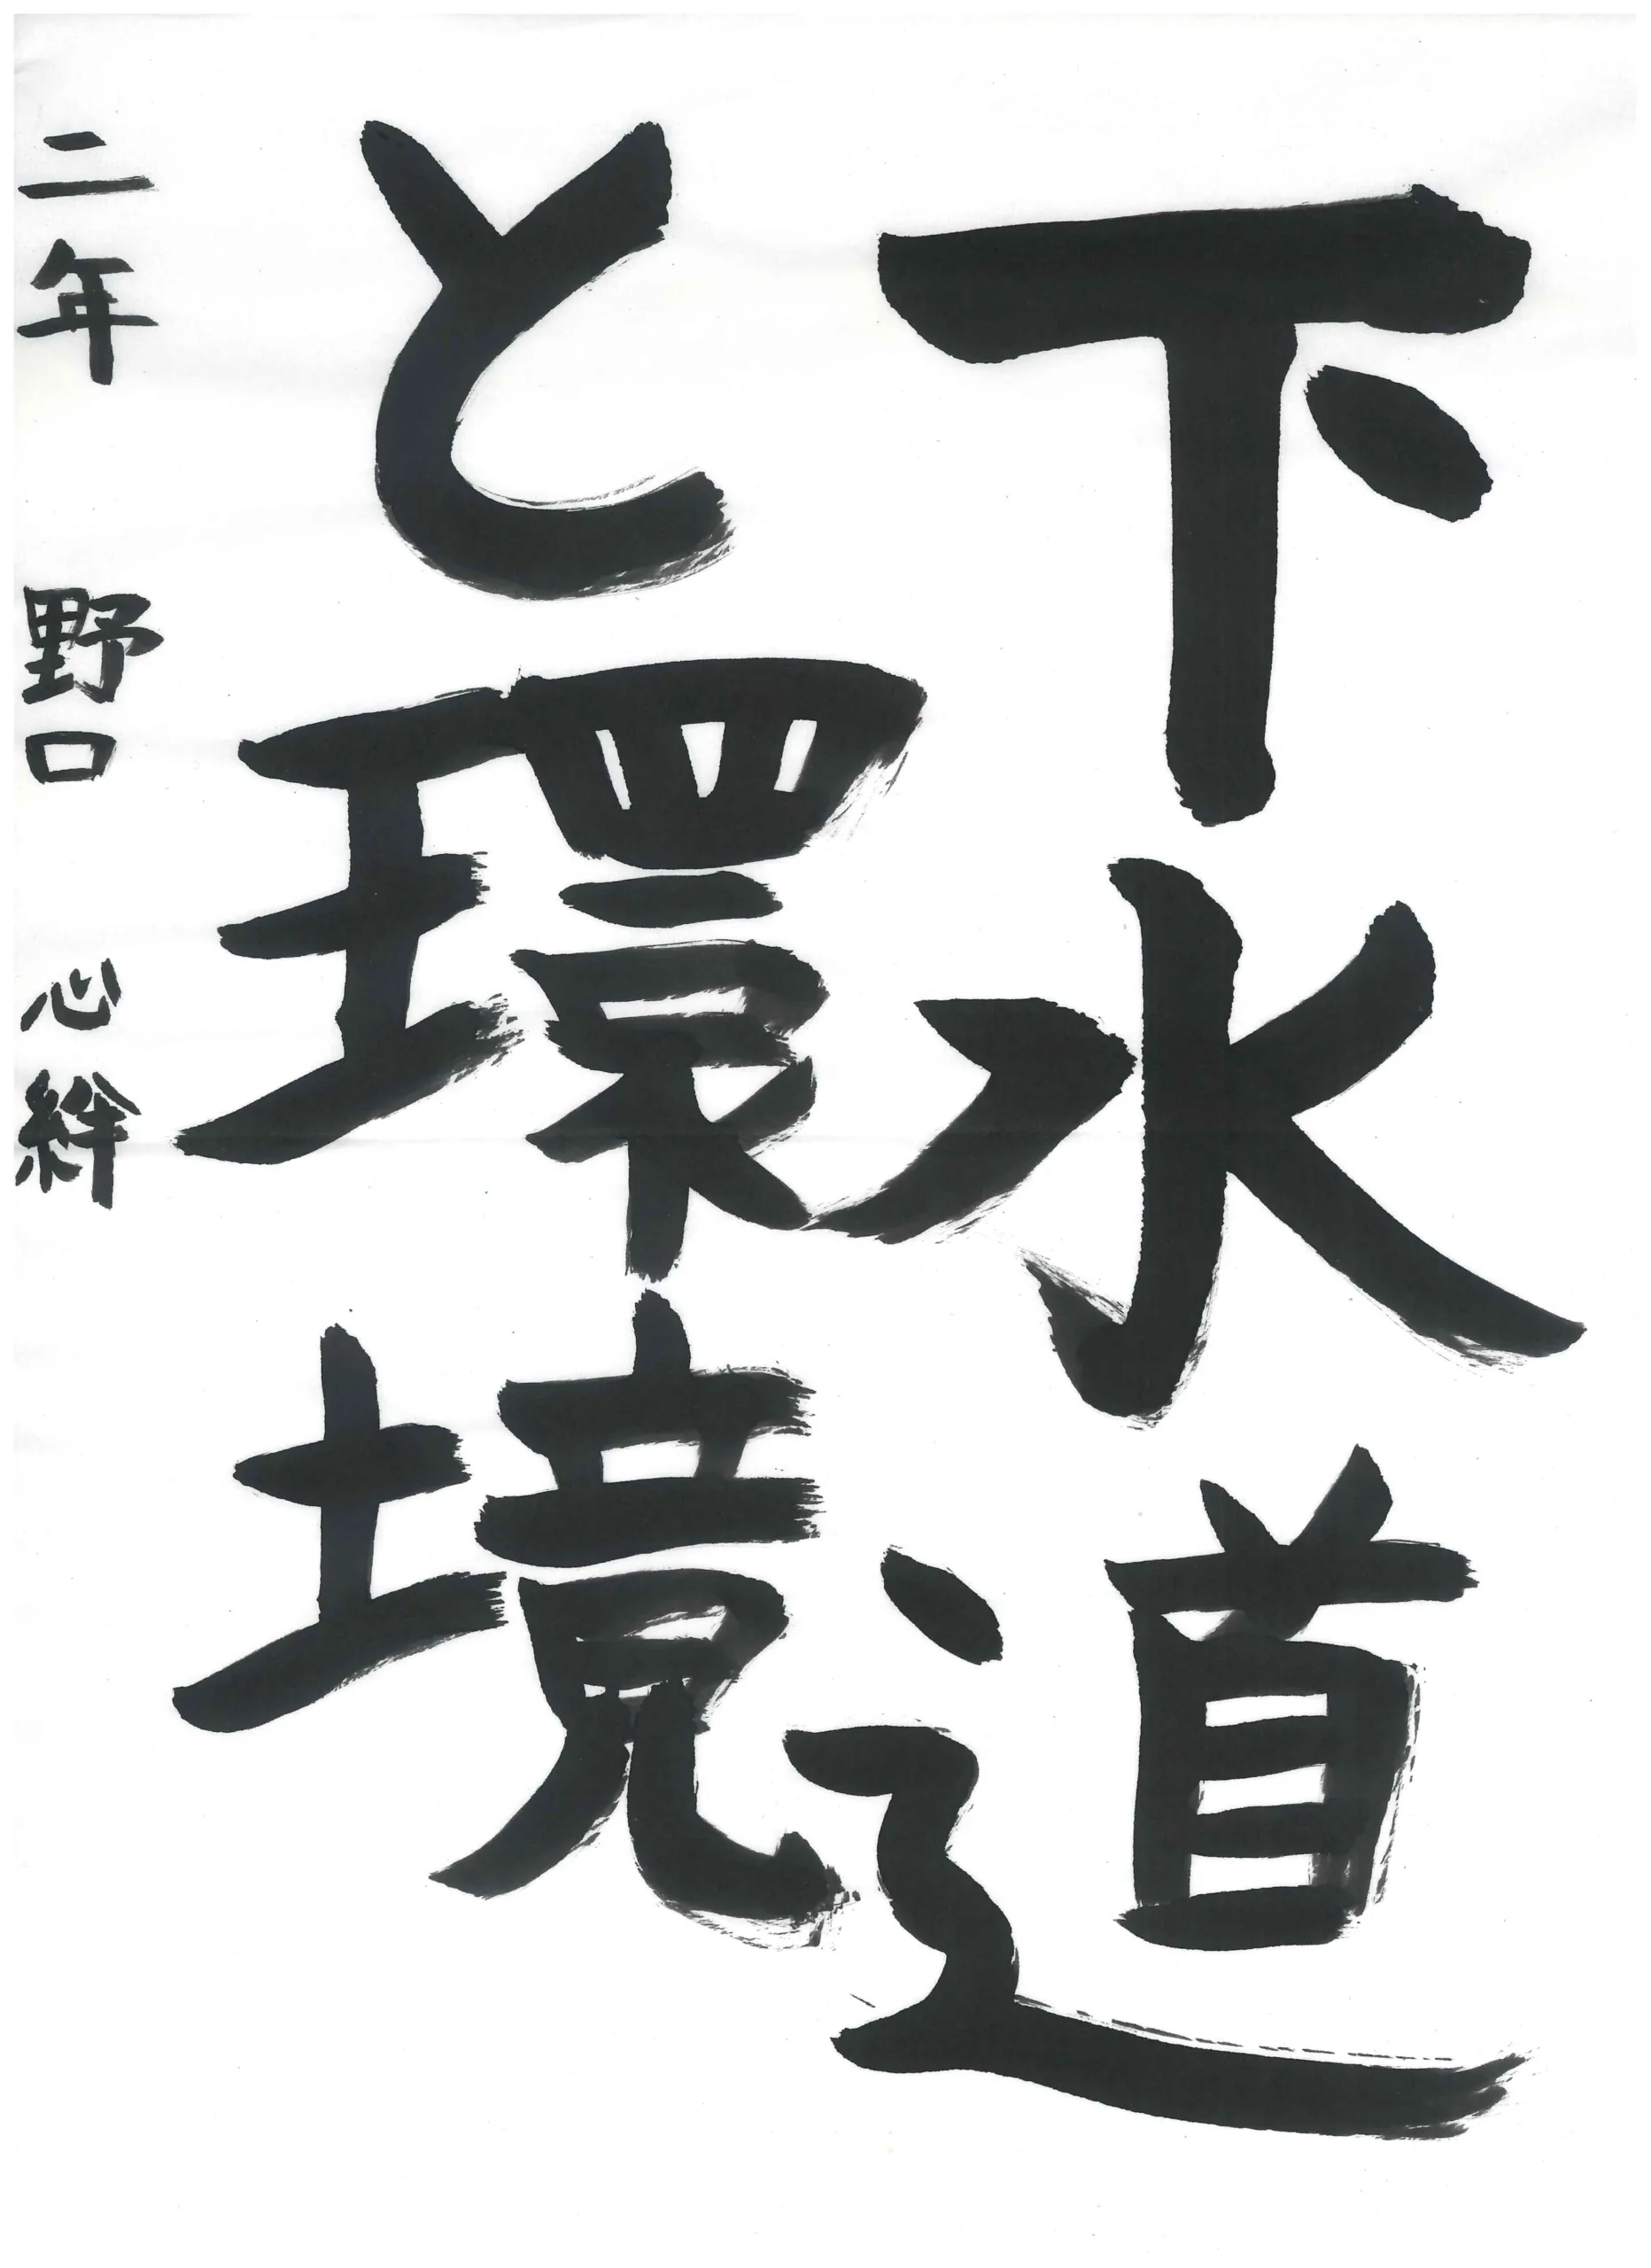 下水道
と環境
二年 野口 心絆